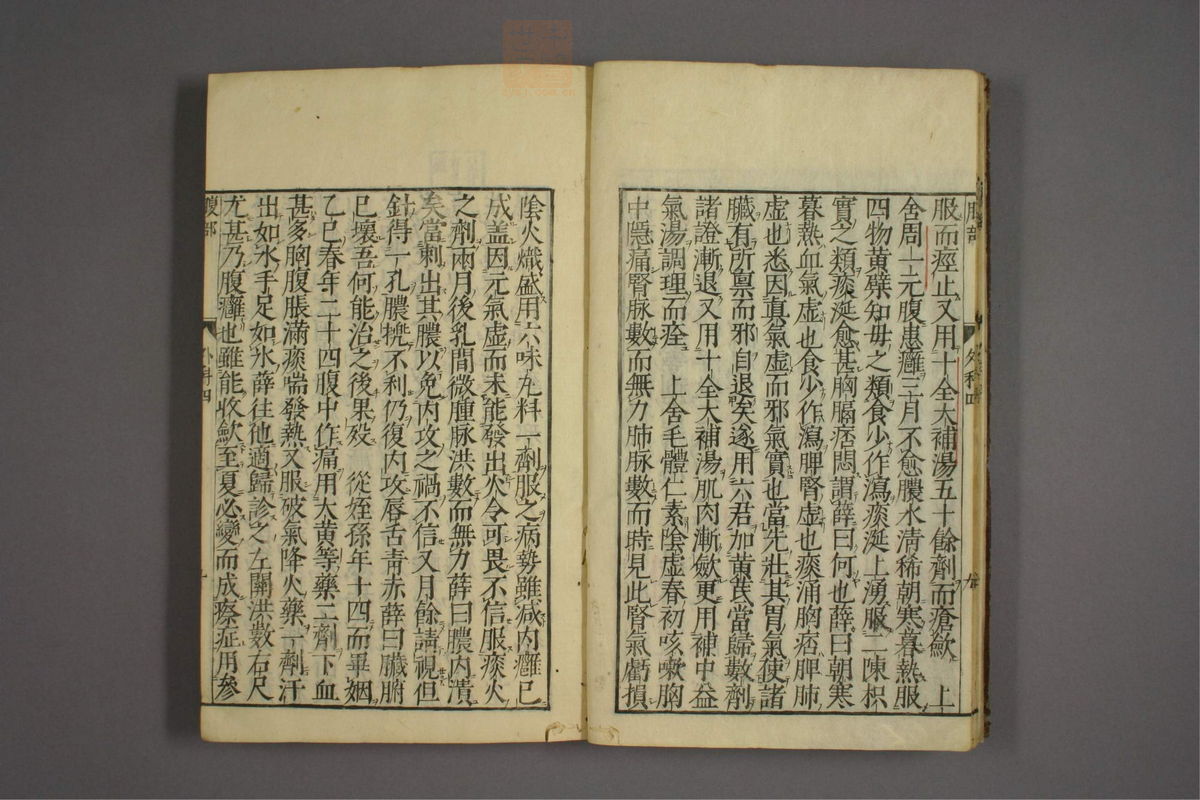 服而瘂止又用十全大補湯五十餘劑而瘡歛　上
舍周一元腹患癰三月不愈膿水清稀朝寒暮熱服
四物黃蘗知毋之類食少作瀉痰涎上湧服二陳枳
實之類痰涎愈甚胸膈痞悶謂薛曰何也薛曰朝寒
暮熱血氣虚也食少作瀉脾腎虚也痰涌胸痞脾肺
虚也悉因真氣虚而邪氣實也當先壯其胃氣使諸
臓有所禀而邪自退矣遂用六君加黃芪當歸數劑
諸證漸退又用十全大補湯肌肉漸歛更用補中益
氣湯調理而痊　上舍毛體仁素陰虚春初咳嗽胸
中隱痛腎脉數而無力肺脉數而時見此腎氣虧損
外科四
陰火熾盛用六味丸料一劑服之病勢雖減内癰已
成盖因元氣虚而未能發出火令可畏不信服痰火
之劑兩月後乳間微腫脉洪數而無力薛曰膿内潰
矣當刺出其膿以免内攻之禍不信又月餘請視但
針得一孔膿㨪不利仍復内攻唇舌青赤薛曰臓腑
已壞吾何能治之後果殁　從姪孫年十四而畢姻
乙巳春年二十四腹中作痛用大黄等藥二劑下血
甚多胸腹脹滿痰喘發熱又服破氣降火藥一劑汗
出如水手足如氷薛往他適歸診之左關洪數右尺
尤甚乃腹癰也雖能收歛至夏必變而成瘵症用參
腹部
外科四